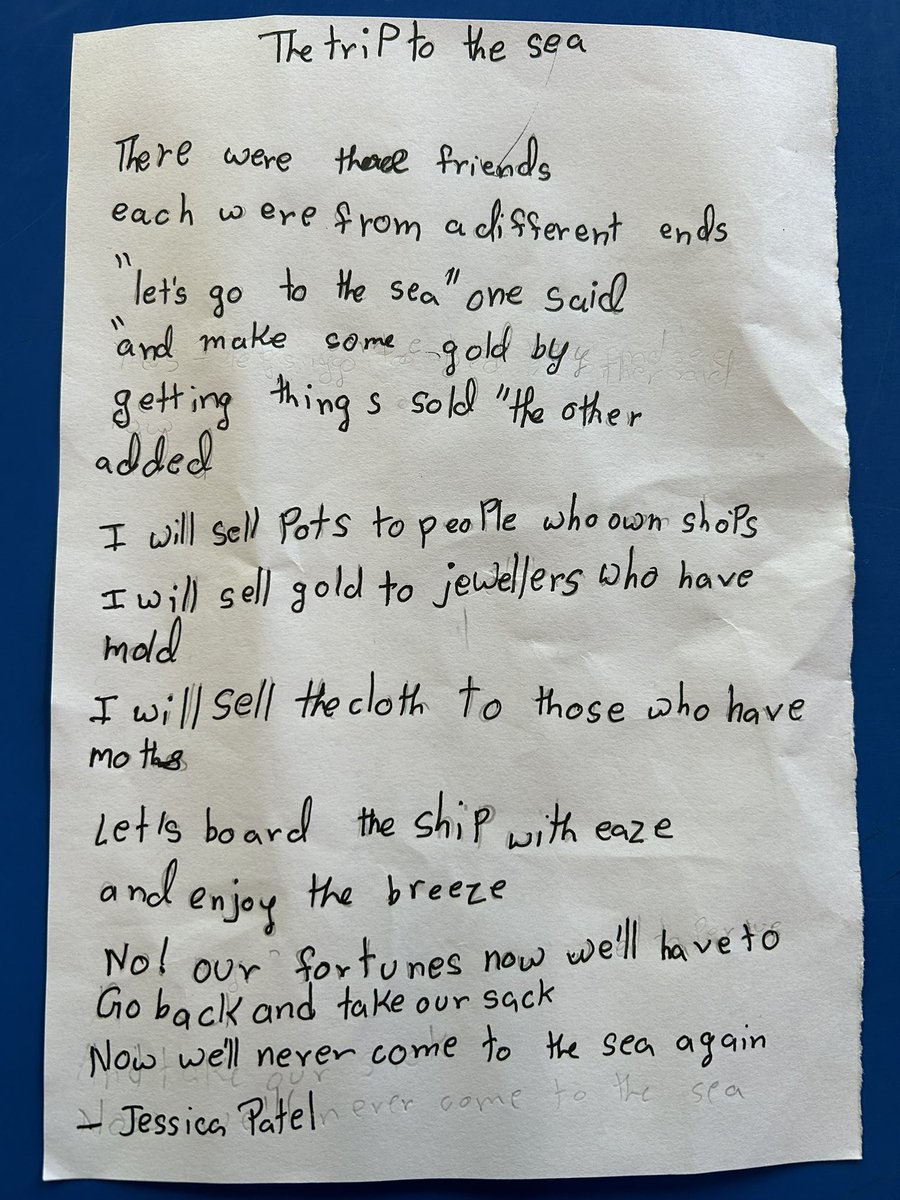 The triP to the sea
There were three friends
each were from a different ends
"let's go to the sea" one said
"and make some gold by
getting things sold "the other
added
I will sell Pots to peoPle who own shoPs
I will sell gold to jewellers who have
mold
I will sell the cloth to those who have
moths
Let's board the ship with eaze
and enjoy the breeze
No! our fortunes now we'll have to
Go back and take our sack
Now we'll never come to the sea again
never come to the sea
- Jessica Patel